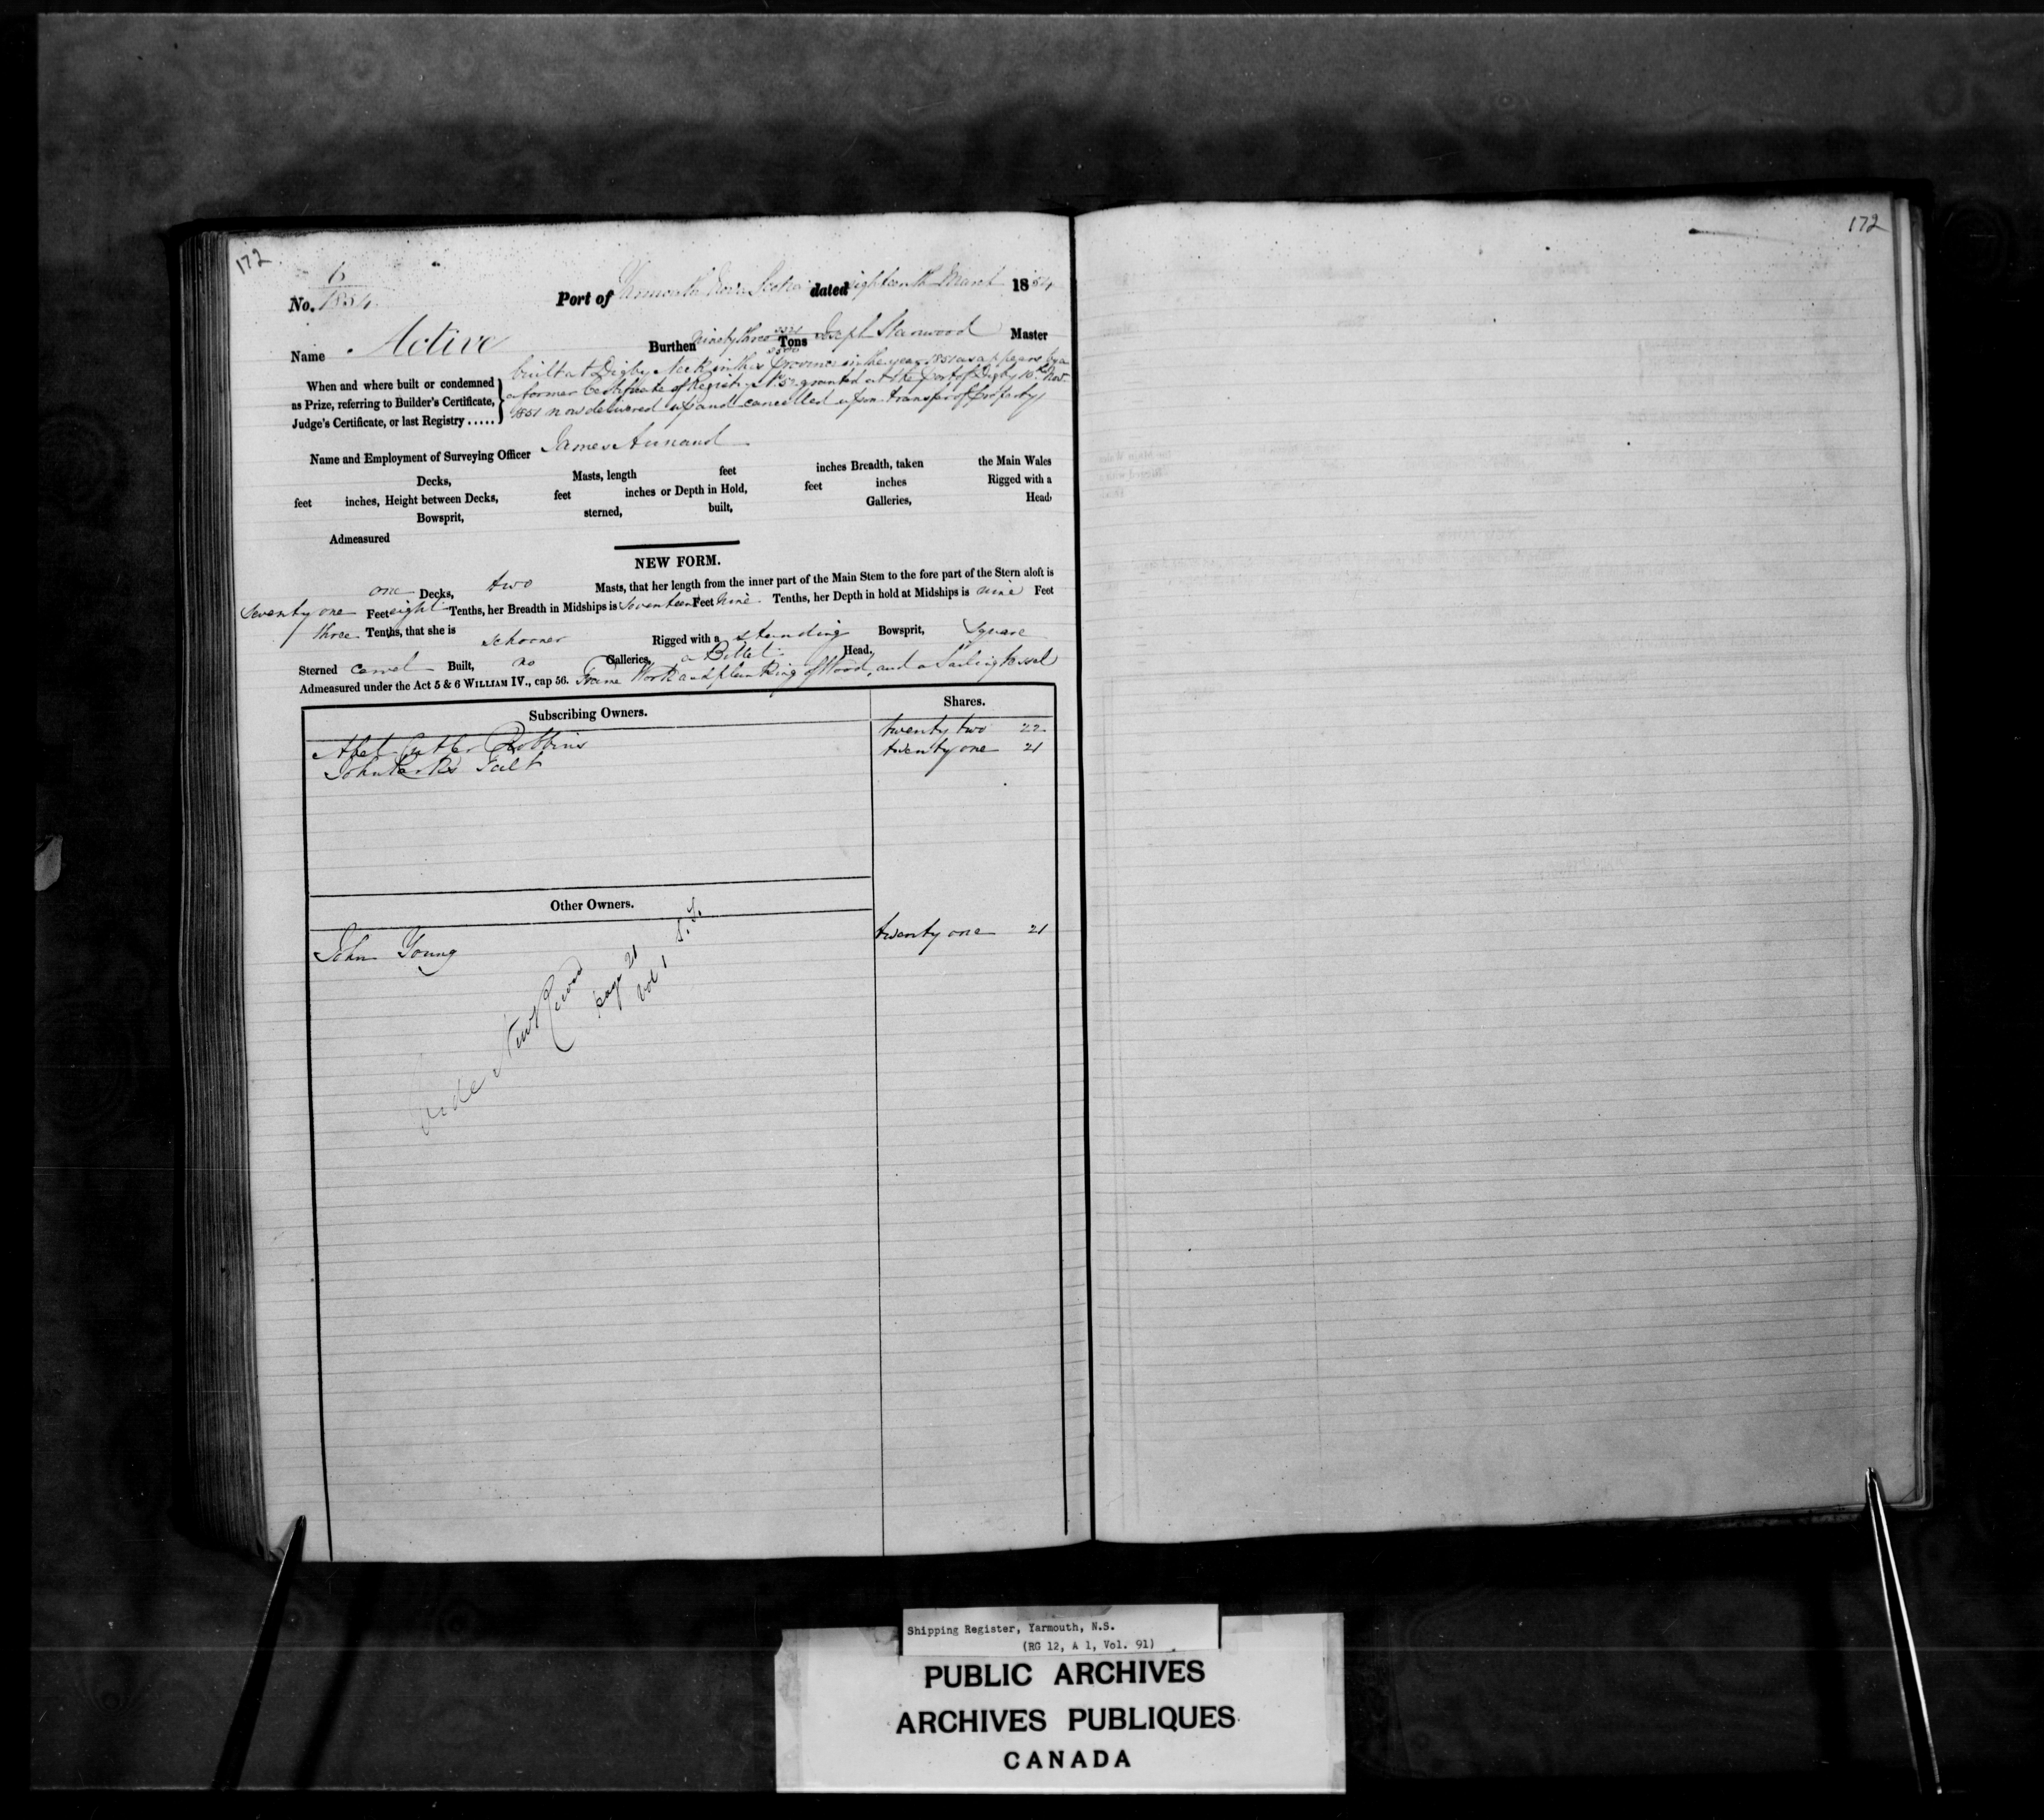 172
172
No. 6/1854
Port of Yarmouth Nova Scotia dated eighteenth March 1854
Name Active Burthen ninety three Tons Joseph Stanwood Master
When and where built or condemned as Prize, referring to Builder's Certificate, Judge's Certificate, or last Registry .....
built at Digby Neck in this Province in the year 1851 as appears by a
former Certificate of Registry No 52 granted at the port of Digby 10th Nov.
1851 now delivered up and cancelled upon transfer of property
Name and Employment of Surveying Officer James Annand
Decks, Masts, length feet inches Breadth, taken the Main Wales
feet inches, Height between Decks, feet inches or Depth in Hold, feet inches Rigged with a
Bowsprit, sterned, built, Galleries, Head,
Admeasured
NEW FORM.
one Decks, two Masts, that her length from the inner part of the Main Stem to the fore part of the Stern aloft is
seventy one Feet eight Tenths, her Breadth in Midships is seventeen Feet nine Tenths, her Depth in hold at Midships is nine Feet
three Tenths, that she is schooner Rigged with a standing Bowsprit, Square
Sterned carvel Built, no Galleries, a Billet Head.
Admeasured under the Act 5 & 6 WILLIAM IV., cap 56. Frame Work and planking of Wood, and a Sailing Vessel
Subscribing Owners. Shares.
Abel Cutler Robbins twenty two 22
John Tult twenty one 21
Other Owners.
John Young twenty one 21
Vide New Record
page 21
Vol 1
Shipping Register, Yarmouth, N.S.
(RG 12, A 1, Vol. 91)
PUBLIC ARCHIVES
ARCHIVES PUBLIQUES
CANADA